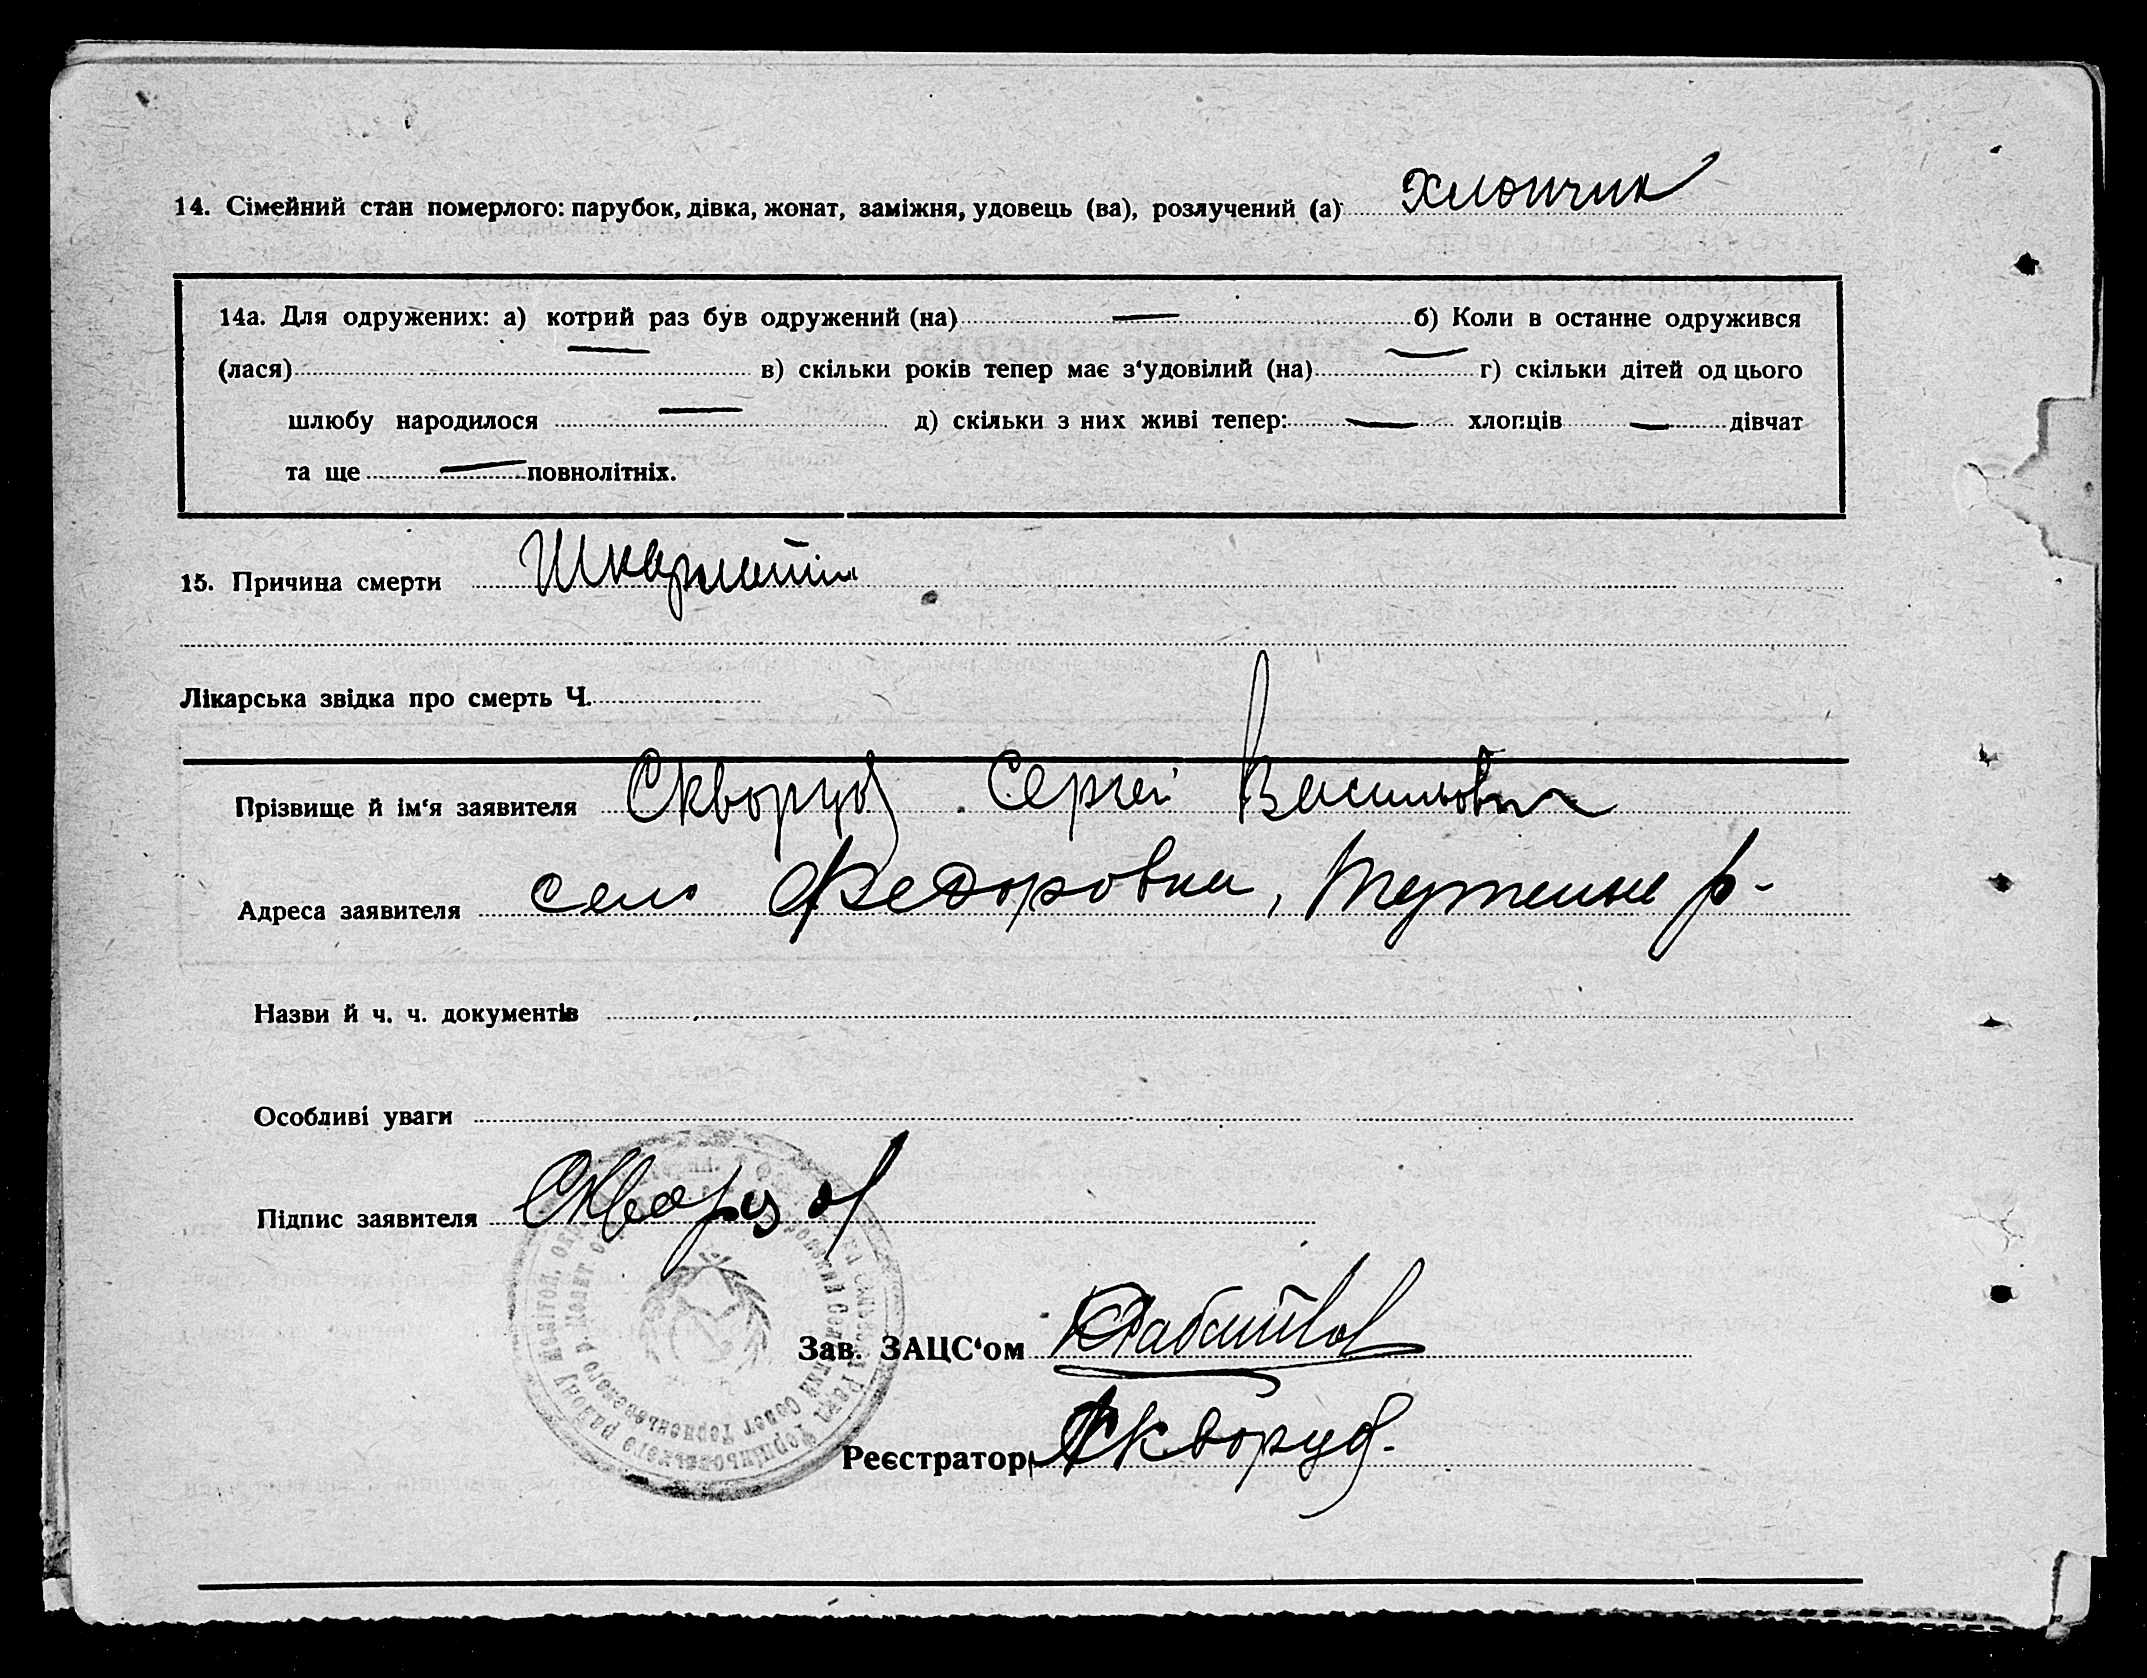 14. Сімейний стан померлого: парубок, дівка, жонат, заміжня, удовець (ва), розлучений (а) Хлопчик
14а. Для одружених: а) котрий раз був одружений (на) — б) Коли в останне одружився
(лася) — в) скільки років тепер має з‘удовілий (на) — г) скільки дітей од цього
шлюбу народилося — д) скільки з них живі тепер: — хлопців — дівчат
та ще — повнолітніх.
15. Причина смерти Шкарлатін
Лікарська звідка про смерть Ч.
Прізвище й ім‘я заявителя Скворцов Сергей Васильович
Адреса заявителя село Федоровка, р-
Назви й ч. ч. документів
Особливі уваги
Підпис заявителя Скворцов
Зав. ЗАЦС‘ом
Реєстратор Скворцов